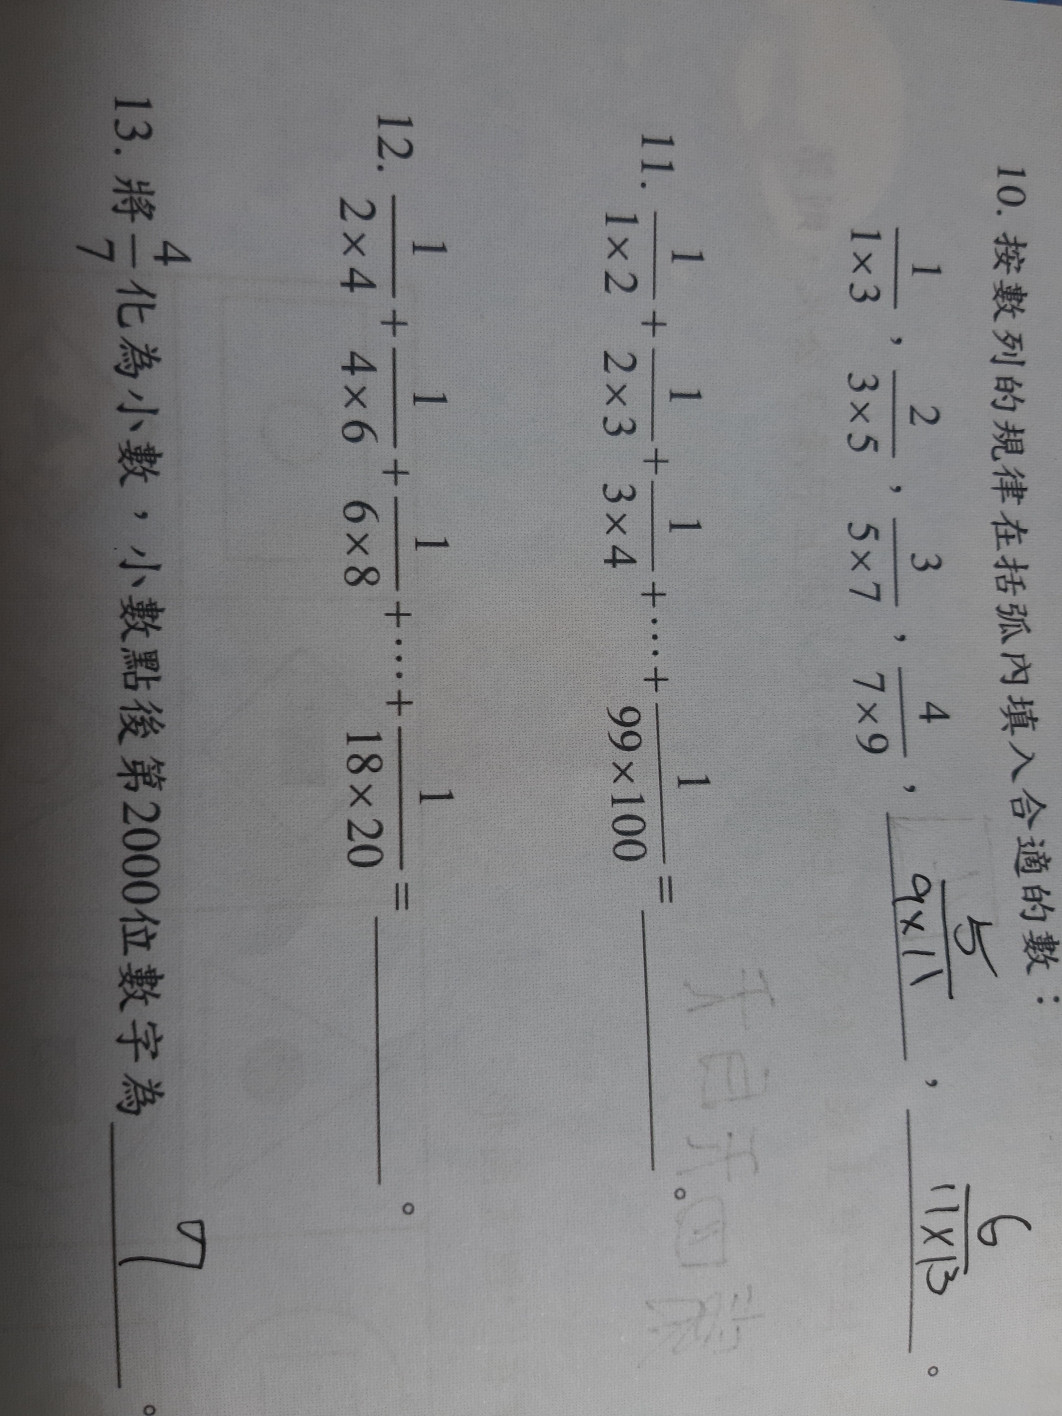 10. 按數列的規律在括弧內填入合適的數：
1/1×3，2/3×5，3/5×7，4/7×9，5/9×11，6/11×13。
11. 1/1×2 + 1/2×3 + 1/3×4 +⋯+ 1/99×100 = 。
12. 1/2×4 + 1/4×6 + 1/6×8 +⋯+ 1/18×20 = 。
13. 將4/7化為小數，小數點後第2000位數字為 7 。